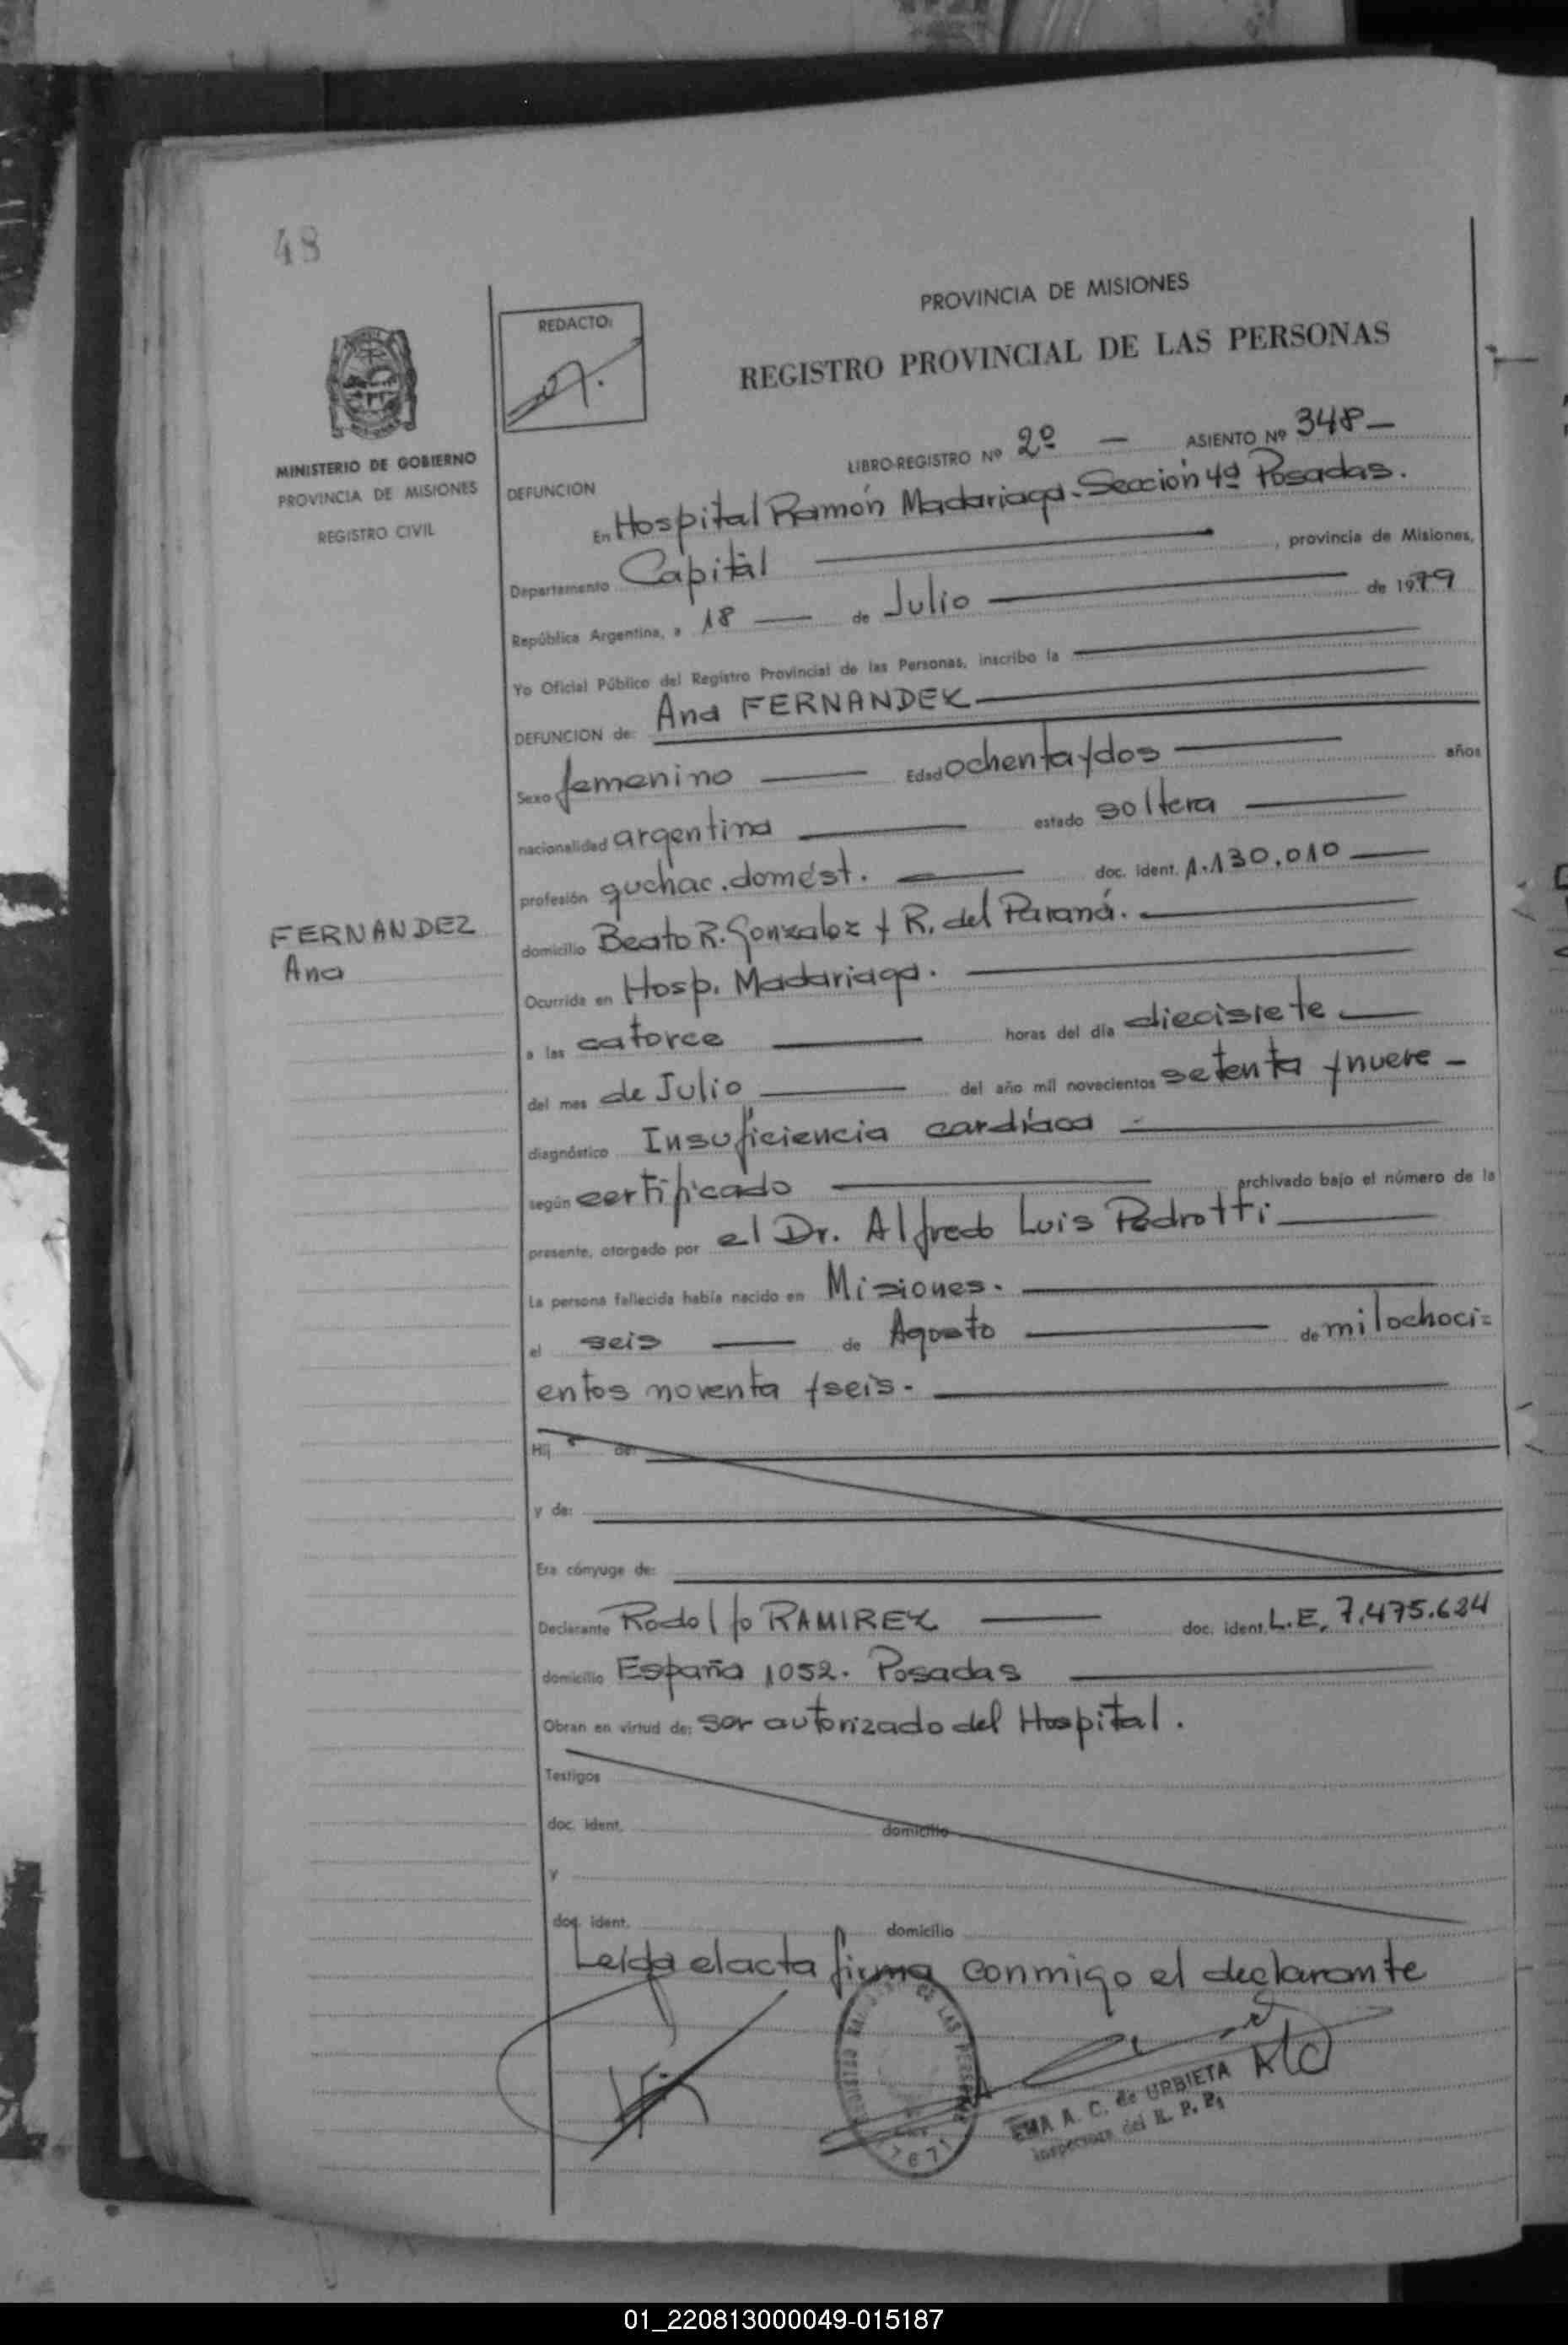 48
PROVINCIA DE MISIONES
REDACTO:
REGISTRO PROVINCIAL DE LAS PERSONAS
LIBRO-REGISTRO Nº 2º — ASIENTO Nº 348—
MINISTERIO DE GOBIERNO
PROVINCIA DE MISIONES
REGISTRO CIVIL
DEFUNCION
En Hospital Ramón Madariaga-Sección 4ª Posadas.
Departamento Capital , provincia de Misiones,
República Argentina, a 18 — de Julio de 1979
Yo Oficial Público del Registro Provincial de las Personas, inscribo la
DEFUNCION de: Ana FERNANDEZ
Sexo femenino Edad ochenta y dos años
nacionalidad argentina estado soltera
profesión quehac. domést. doc. ident. 1.130.010
FERNANDEZ
Ana
domicilio Beato R. Gonzalez y R. del Paraná.
Ocurrida en Hosp. Madariaga.
a las catorce horas del día diecisiete
del mes de Julio del año mil novecientos setenta y nueve
diagnóstico Insuficiencia cardíaca
según certificado archivado bajo el número de la
presente, otorgado por el Dr. Alfredo Luis Pedrotti
La persona fallecida había nacido en Misiones.
el seis de Agosto de mil ochoci=
entos noventa y seis.
Hij de:
y de:
Era cónyuge de:
Declarante Rodolfo RAMIREZ doc. ident. L.E. 7.475.624
domicilio España 1052. Posadas
Obran en virtud de: ser autorizado del Hospital.
Testigos
doc. ident. domicilio
y
doc. ident. domicilio
Leída el acta firma conmigo el declarante
DE LAS PERSONAS
EMA A. C. de URBIETA
Inspectora del R. P. P.
01_220813000049-015187